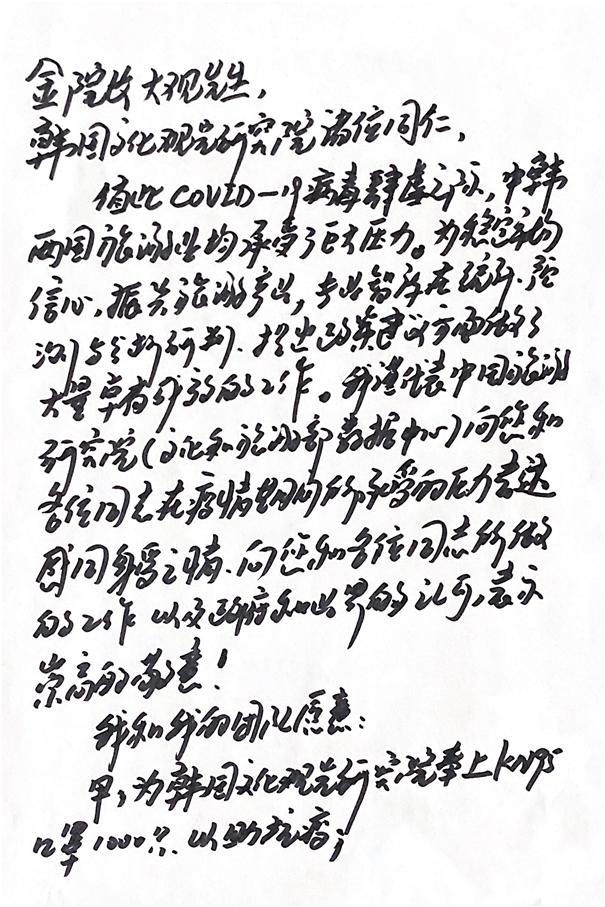 金院长大观先生，
韩国文化观光研究院诸位同仁，
值此COVID—19病毒肆虐之际，中韩
两国旅游业均承受了巨大压力。为稳定市场
信心，振兴旅游产业，专业智库在统计、预
测与分析研判、提出政策建议方面做了
大量卓有成效的工作。我谨代表中国旅游
研究院（文化和旅游部数据中心）向您和
各位同志在疫情期间所承受的压力表达
感同身受之情、向您和各位同志所做
的工作以及政府和业界的认可，表示
崇高的敬意！
我和我的团队愿意：
甲，为韩国文化观光研究院奉上KN95
口罩1000只、以助抗疫；